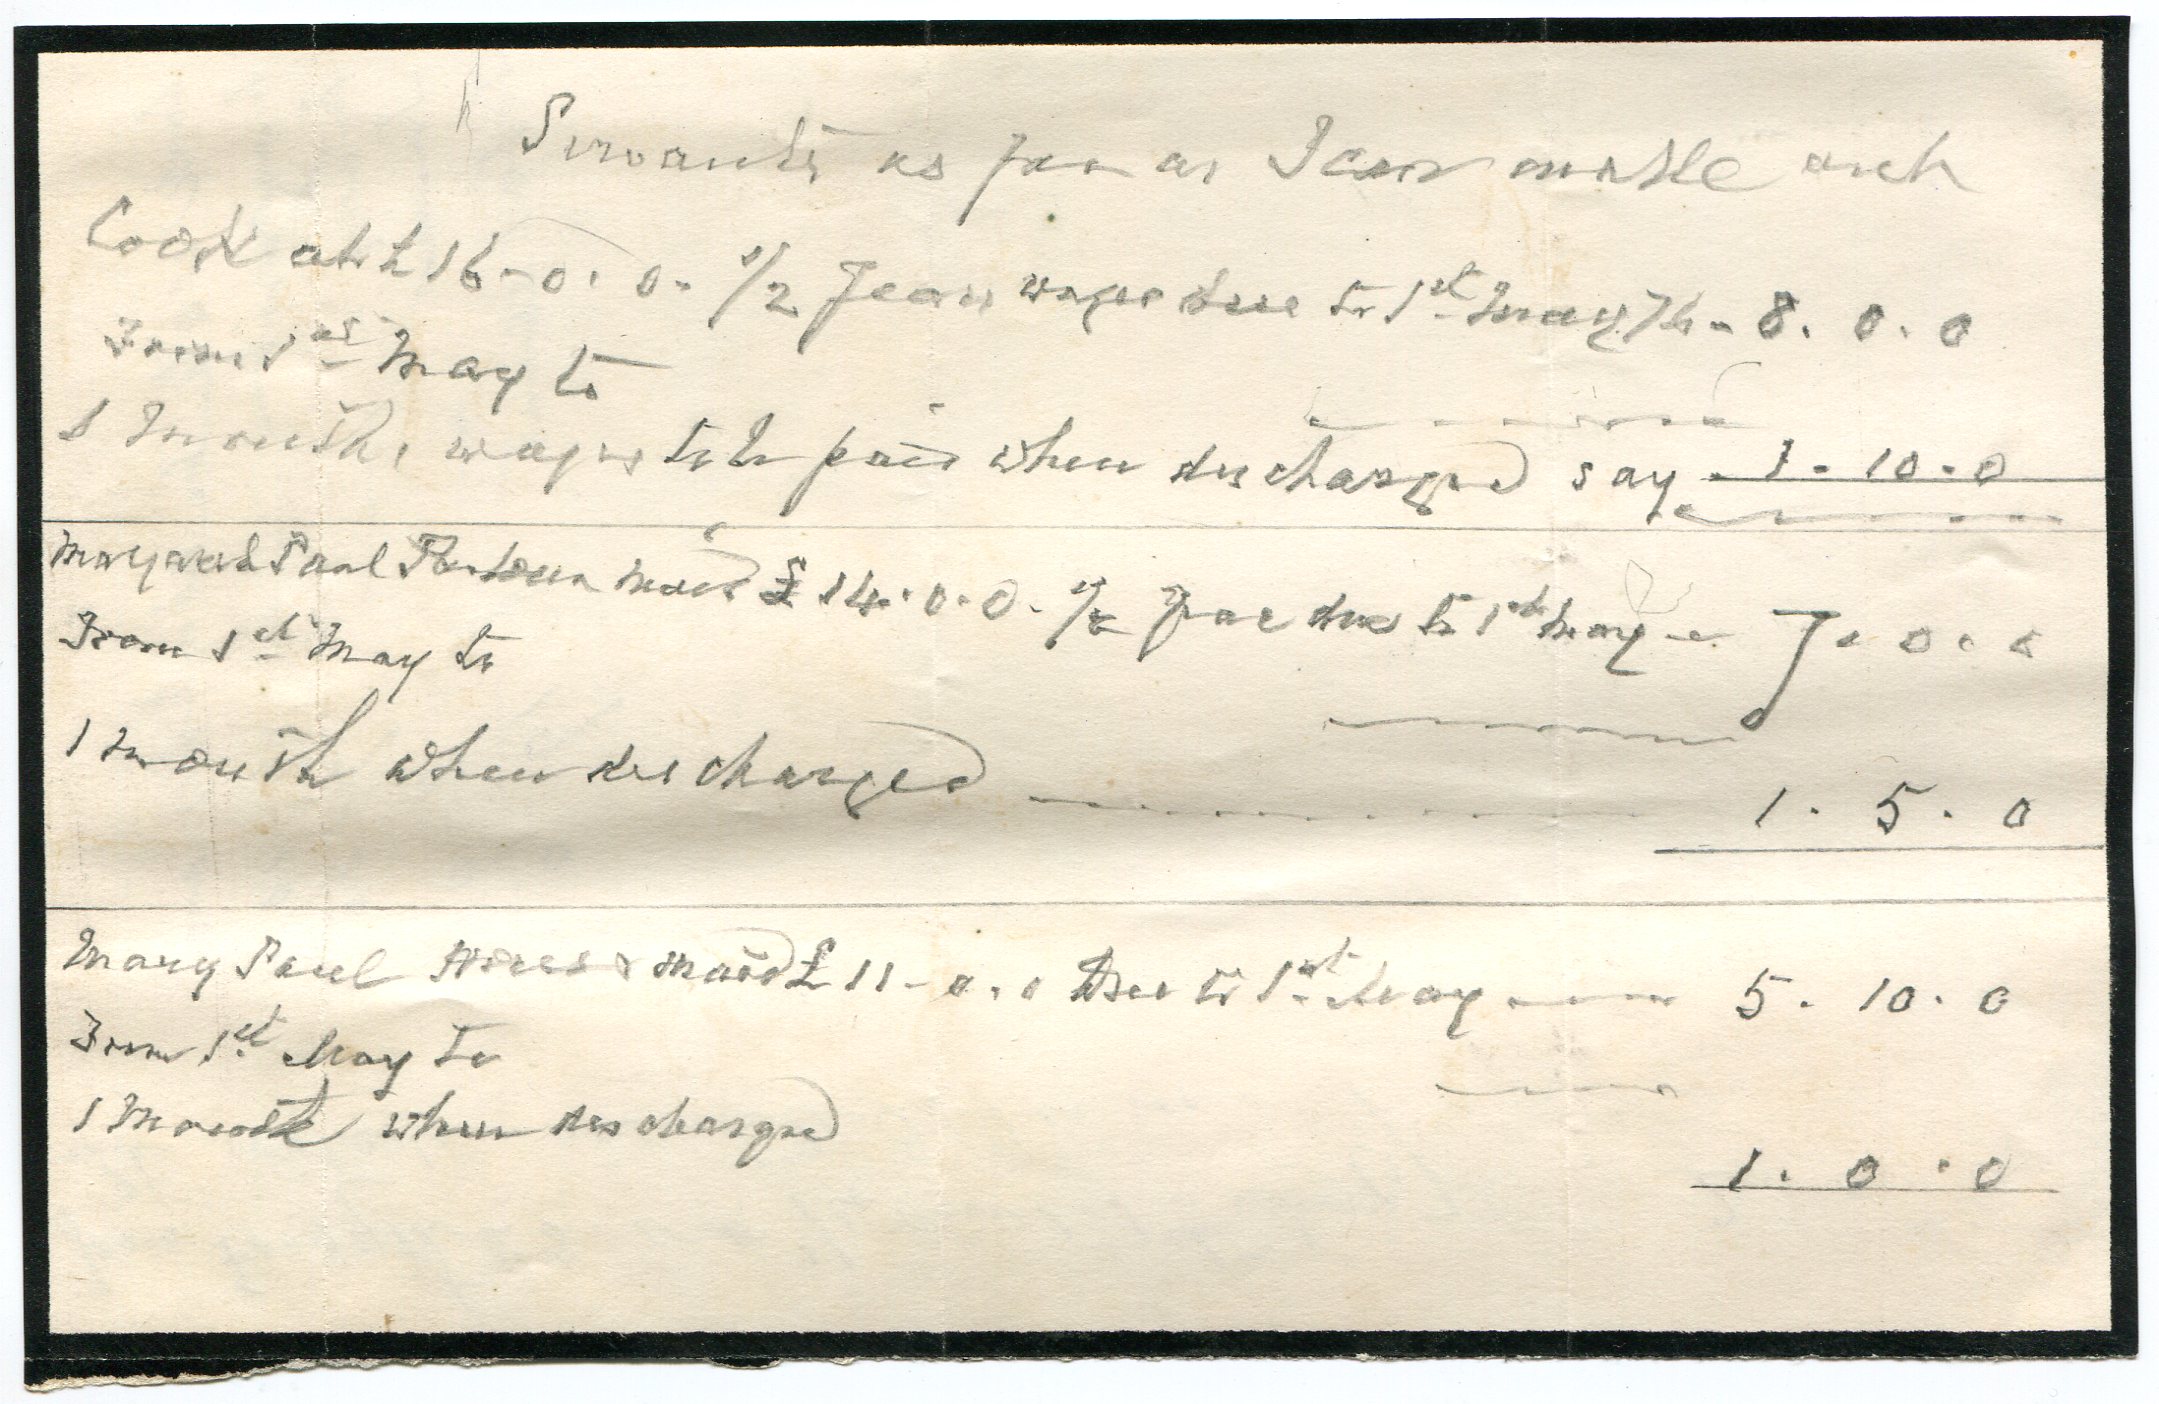 Servants as far as I can make out
Cook at £16-0.0. 1/2 Years wages due to 1st May 76 - 8. 0. 0
From 1st May to
1 Month's wages to be paid when discharged say 1 - 10 - 0
Margaret Paul maid £14.0.0. 1/2 year due to 1st May - 7. 0. 0
From 1st May to
1 Month when discharged 1. 5. 0
Mary Paul maid £11-0.0 due to 1st May 5. 10. 0
From 1st May to
1 Month when discharged
1. 0. 0